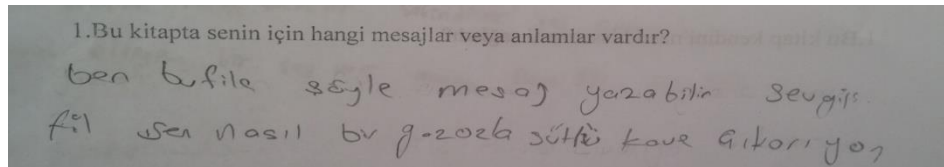 1.Bu kitapta senin için hangi mesajlar veya anlamlar vardır?
ben bu file şöyle mesaj yazabilir sevgili
fil sen nasıl bu gazozla sütlü kave